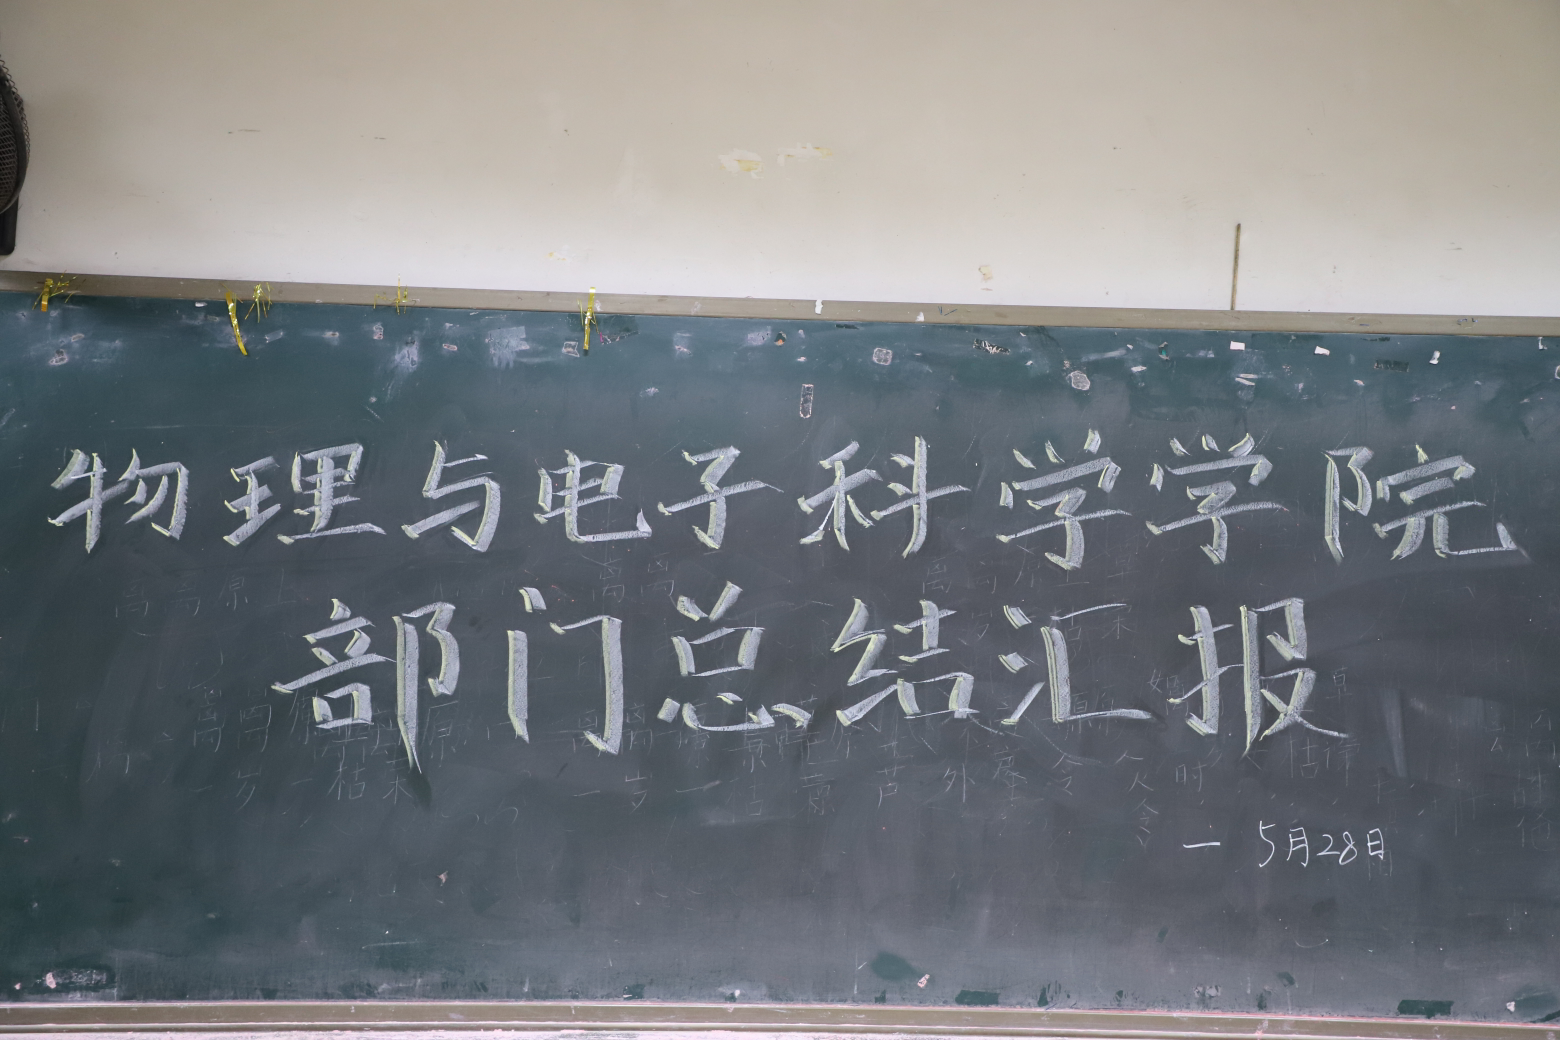 物理与电子科学学院
部门总结汇报
— 5月28日